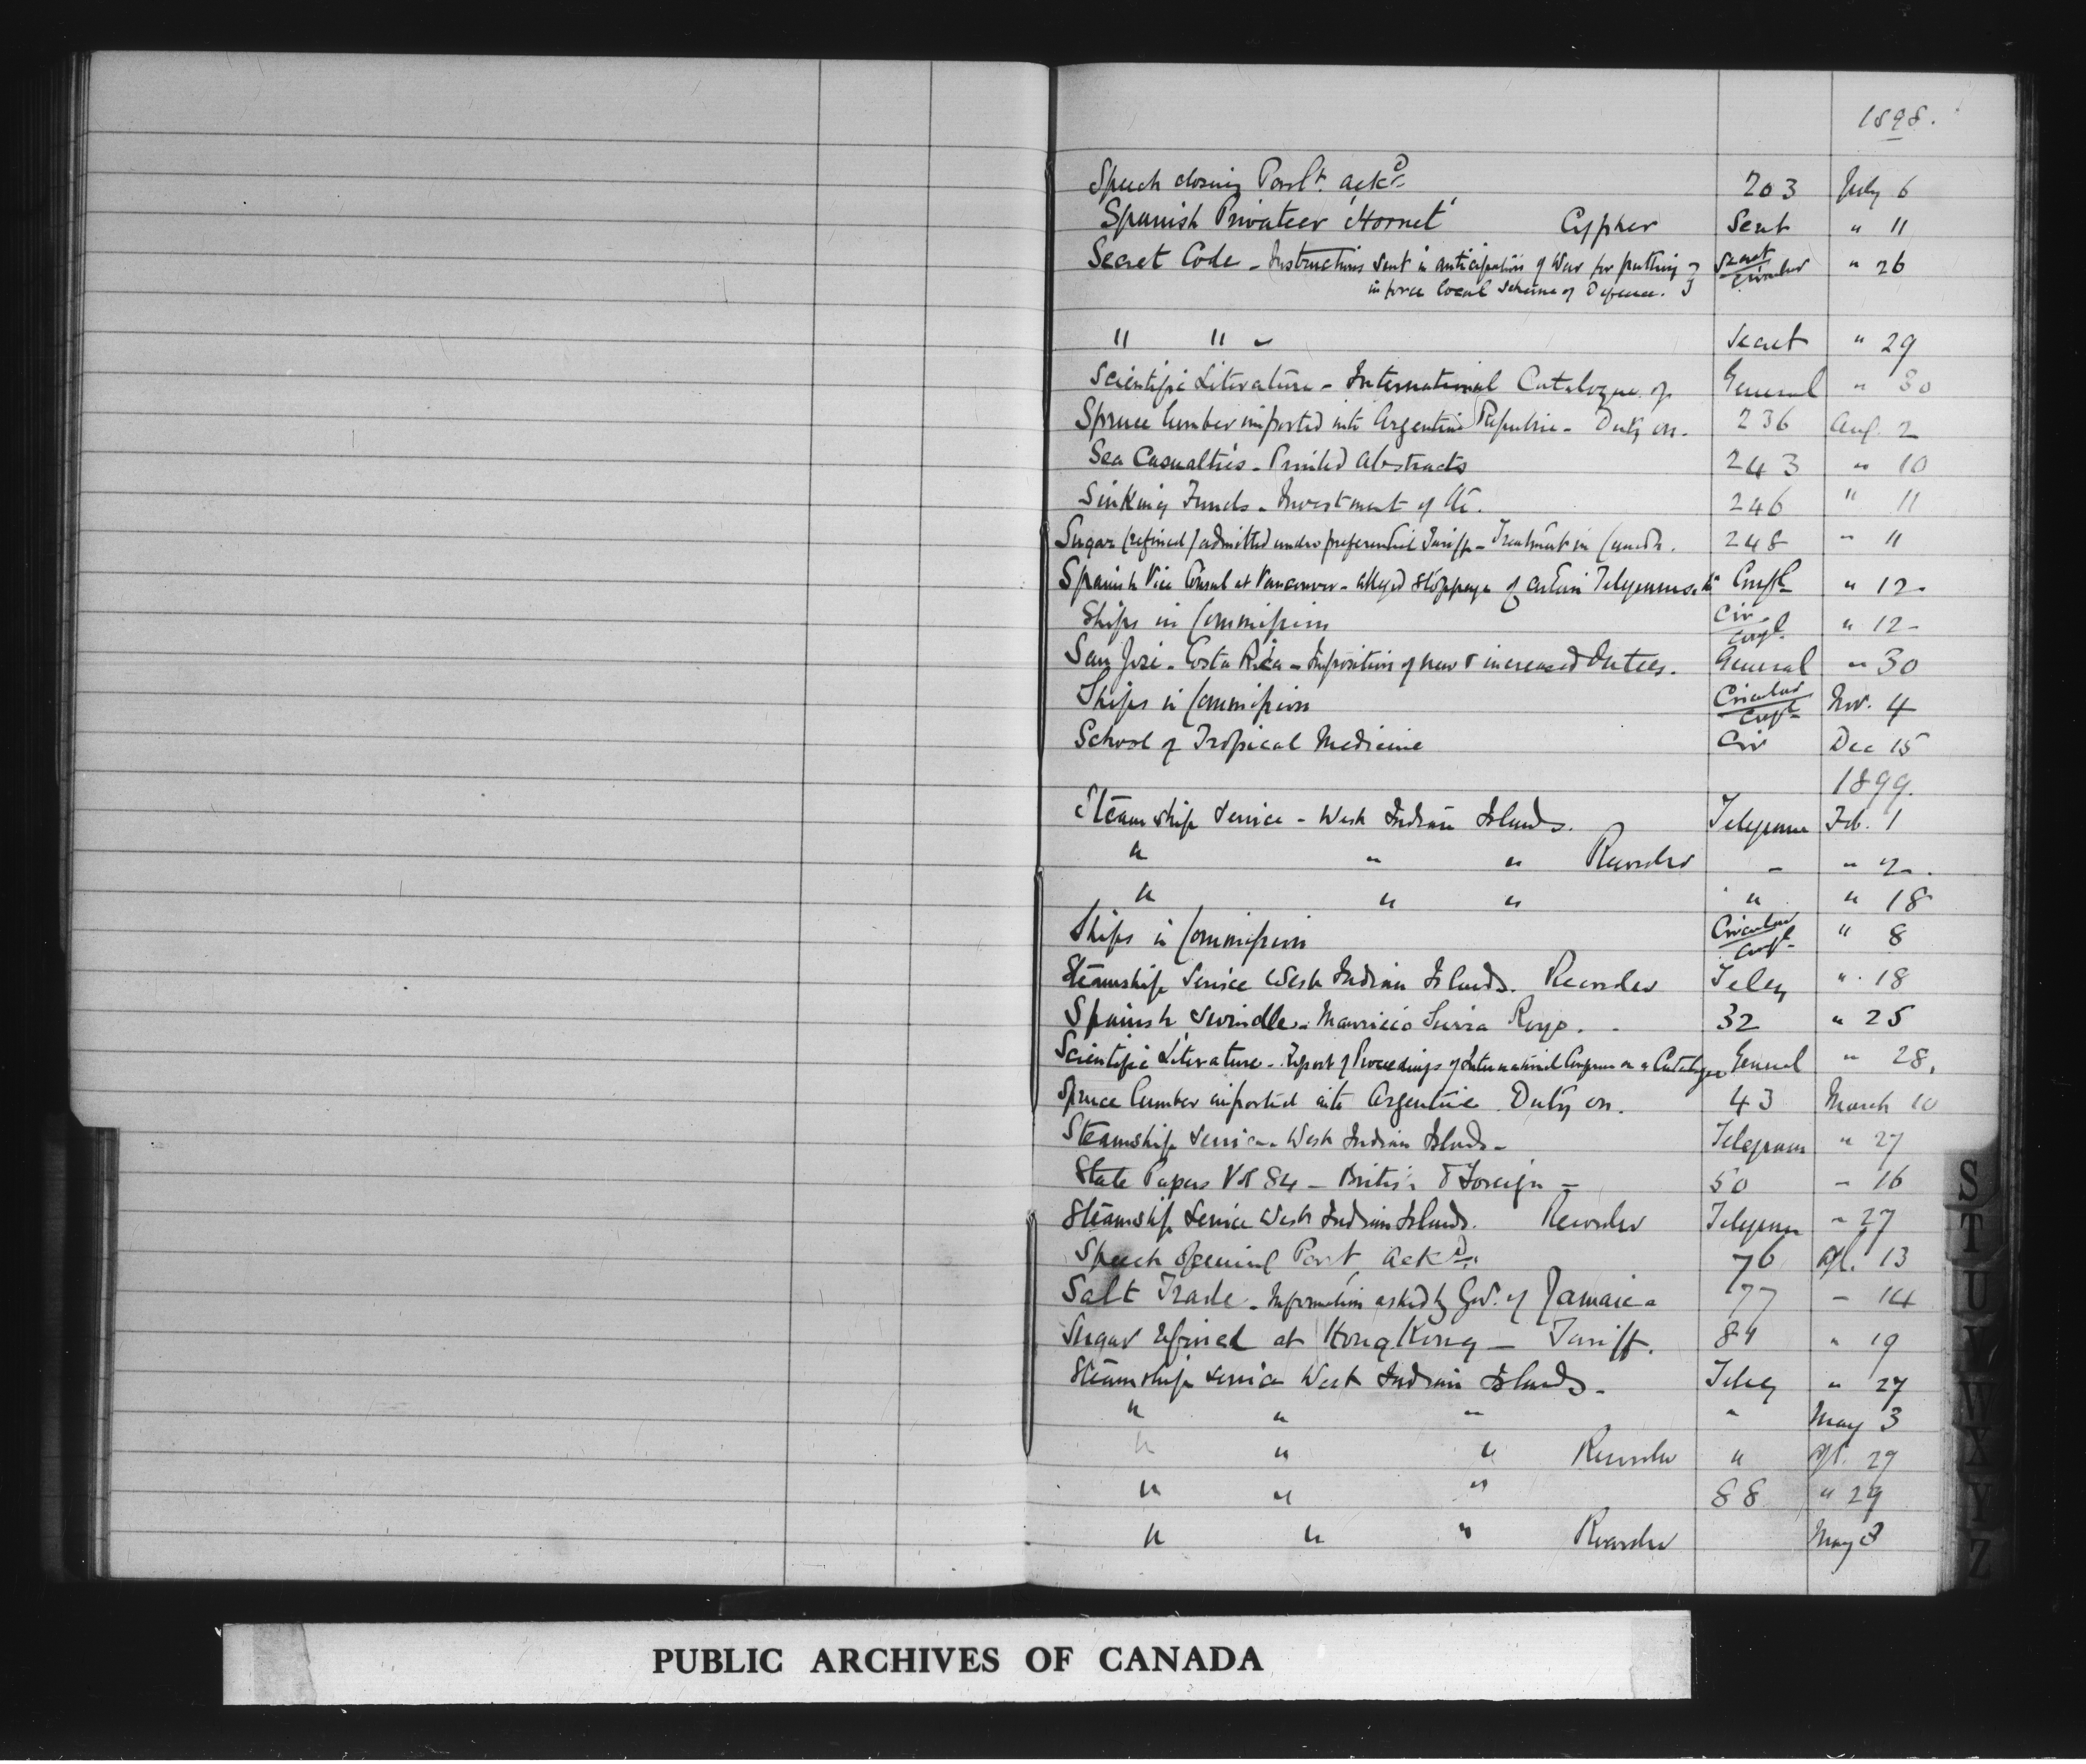 1898.
Speech closing Parlt. ackd. 203 July 6
Spanish Privateer 'Hornet' Cypher Secret " 11
Secret Code - Instructions sent in anticipation of War for putting } Secret " 26
in force local scheme of Defence. } Circular
" " " Secret " 29
Scientific Literature - International Catalogue of General " 30
Spruce lumber imported into Argentine Republic - Duty on. 236 Aug. 2
Sea Casualties - Printed Abstracts 243 " 10
Sinking Funds - Investment of &c. 246 " 11
Sugar (refined) admitted under preferential Tariff - Treatment in Canada. 248 " 11
Spanish Vice Consul at Vancouver - alleged stoppage of certain Telegrams Confl " 12
Ships in Commission Cir Confl " 12
San José - Costa Rica - Imposition of new & increased Duties. General " 30
Ships in Commission Circular Confl Nov. 4
School of Tropical Medicine Cir Dec 15
1899.
Steamship Service - West Indian Islands. Telegram Feb. 1
" " " Recorder - " 2.
" " " " " 18
Ships in Commission Circular Confl " 8
Steamship Service West Indian Islands. Recorder Teleg " 18
Spanish Swindle - Mauricio Royo. 32 " 25
Scientific Literature - Report of Proceedings of International Congress on a Catalogue General " 28.
Spruce lumber imported into Argentine Duty on. 43 March 10
Steamship Service - West Indian Islands - Telegram " 27
State Papers Vol 84 - British & Foreign - 50 " 16
Steamship Service West Indian Islands. Recorder Telegram " 27
Speech Opening Parlt Ackd. 76 Apl. 13
Salt Trade - Information asked by Gov. of Jamaica 77 - 14
Sugar refined at Hong Kong - Tariff. 84 " 19
Steamship Service West Indian Islands - Teleg " 27
" " " " May 3
" " " Recorder " Apl. 29
" " " 88 " 29
" " " Recorder May 3
S
T
U
V
W
X
Y
Z
PUBLIC ARCHIVES OF CANADA